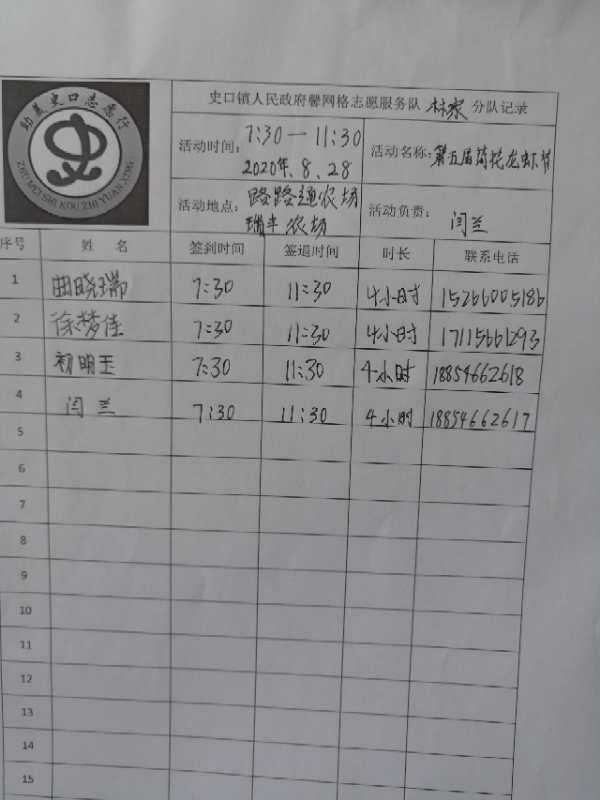 助美史口志愿行
ZHU MEI SHI KOU ZHI YUAN XING
史口镇人民政府馨网格志愿服务队 林家 分队记录
活动时间: 7:30 — 11:30
2020年.8.28
活动名称: 第五届荷花龙虾节
活动地点: 路路通农场
瑞丰农场
活动负责: 闫兰
序号 姓 名 签到时间 签退时间 时长 联系电话
1 曲晓瑞 7:30 11:30 4小时 15266005186
2 徐梦佳 7:30 11:30 4小时 17115661293
3 初明玉 7:30 11:30 4小时 18854662618
4 闫兰 7:30 11:30 4小时 18854662617
5
6
7
8
9
10
11
12
13
14
15